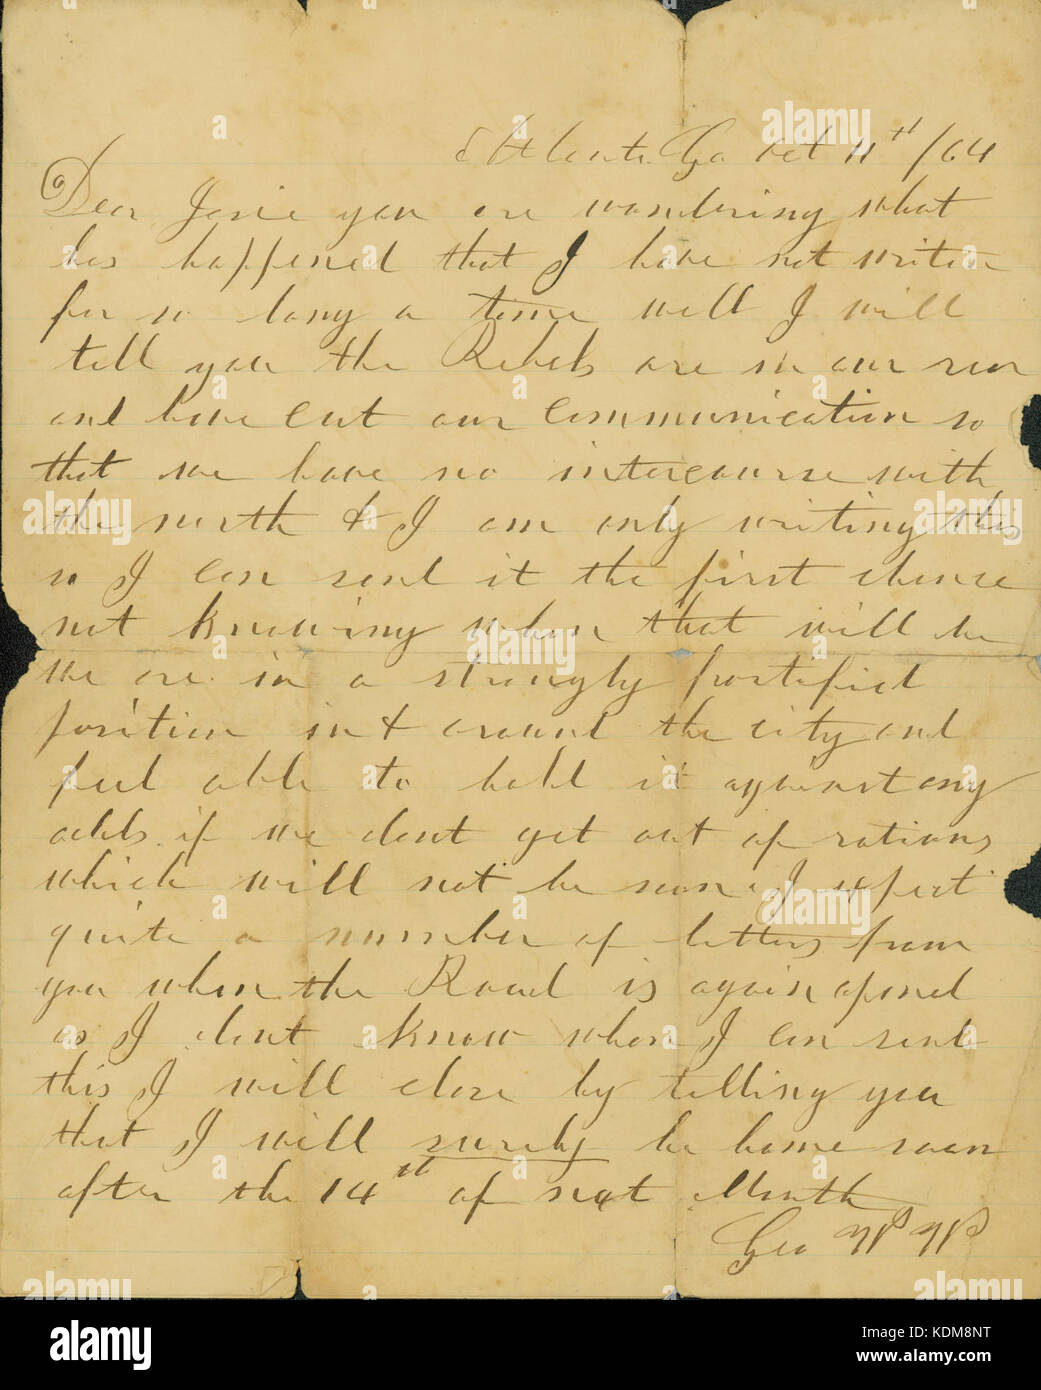 Atlanta Ga Oct 11th /64
Dear Josie you are wondering what
has happened that I have not writen
for so long a time well I will
tell you the Rebels are in our rear
and have cut our communication so
that we have no intercourse with
the north & I am only writing this
so I can send it the first chance
not knowing when that will be
we are in a strongly fortified
position in & around the city and
feel able to hold it against any
odds if we dont get out of rations
which will not be soon. I expect
quite a number of letters from
you when the Road is again opened
as I dont know when I can send
this I will close by telling you
that I will surely be home soon
after the 14th of next Month
Geo
alamy
KDM8NT
www.alamy.com